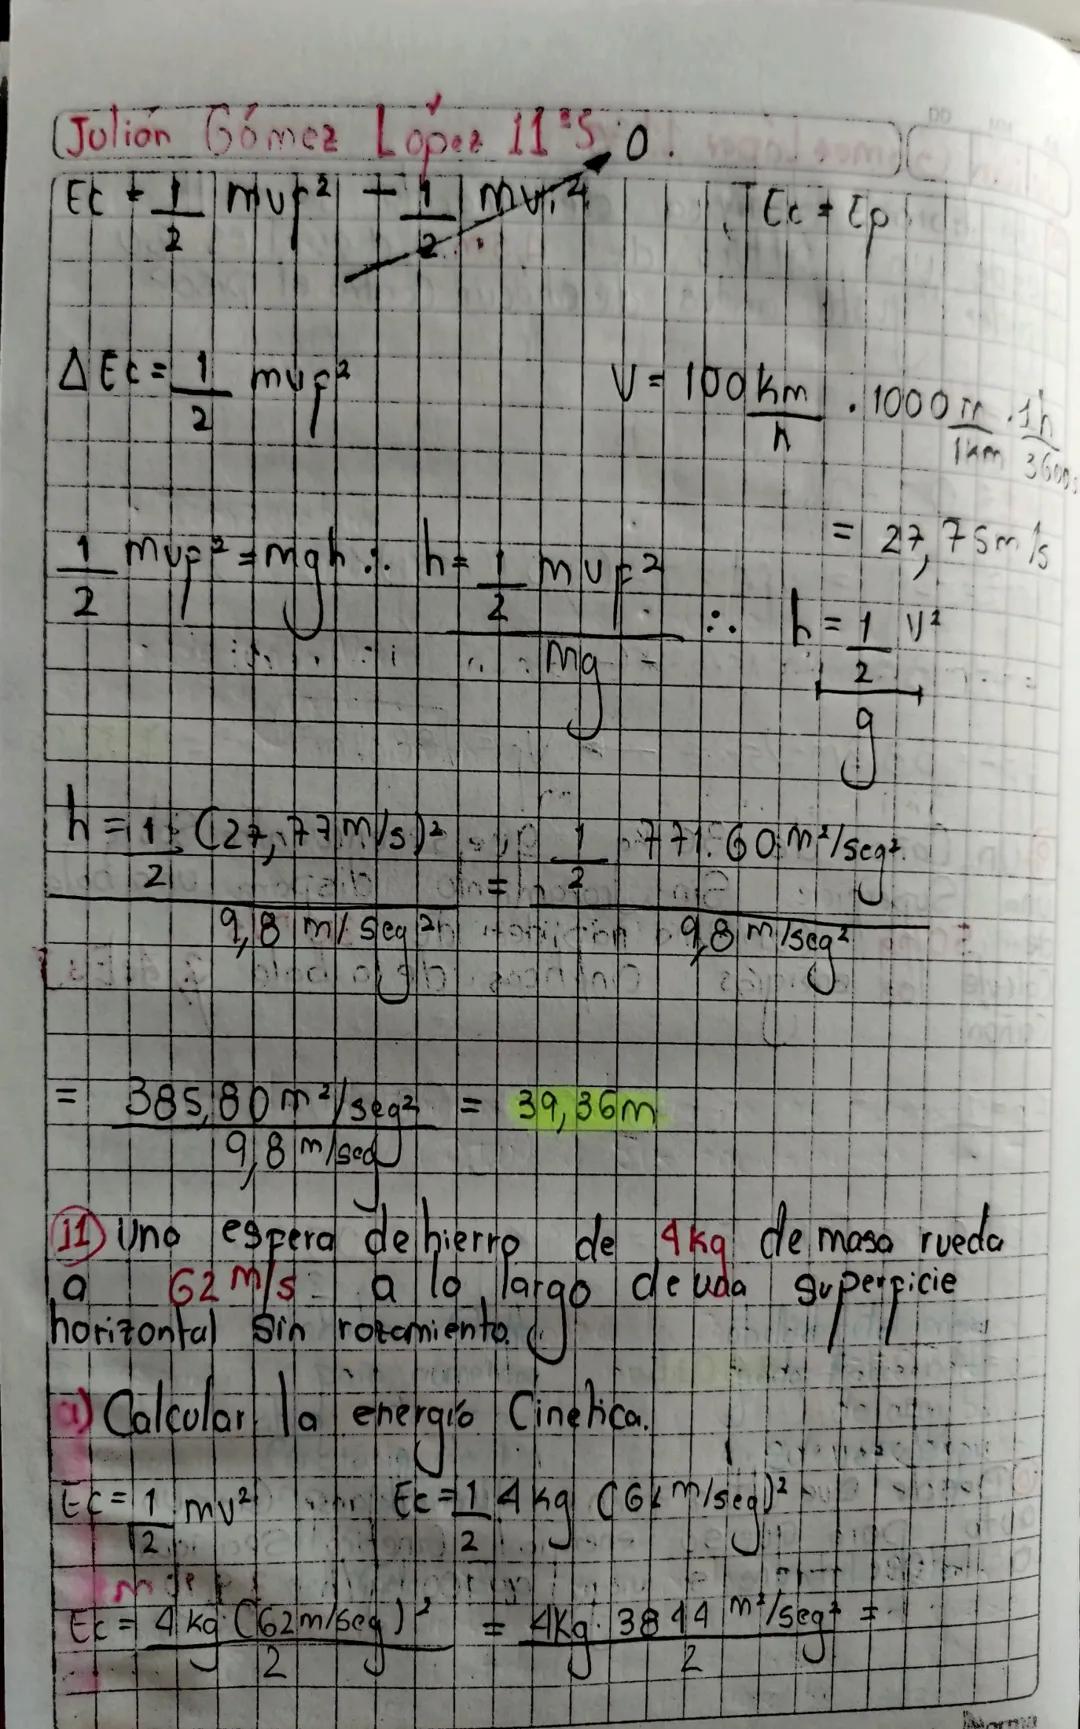 Julián Gómez López 11°5
Ec = 1/2 mvf² + 1/2 mvi² 0. Ec = Ep
ΔEc = 1/2 mvf² V = 100 km/h . 1000 m/1km . 1h/3600s
= 27,75 m/s
1/2 mvf² = mgh ∴ h = 1/2 mvf² / mg ∴ h = 1/2 v² / g
h = 1/2 . (27,77 m/s)² / 9,8 m/seg² = 1/2 771.60 m²/seg² / 9,8 m/seg²
= 385,80 m²/seg² / 9,8 m/seg = 39,36m
11) Una espera de hierro de 4kg de masa rueda
a 62 m/s a lo largo de uda superficie
horizontal sin rozamiento.
a) Calcular la energía Cinetica.
Ec = 1/2 mv² Ec = 1/2 . 4 kg (62 m/seg)²
Ec = 4 kg . (62 m/seg)² / 2 = 4Kg . 3844 m²/seg² / 2 =